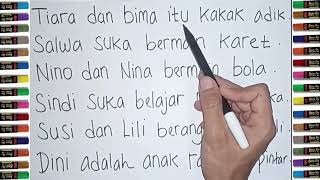 Tiara dan bima itu kakak adik.
Salwa suka bermain karet.
Nino dan Nina bermain bola.
Sindi suka belajar
Susi dan Lili
Dini adalah anak pintar.